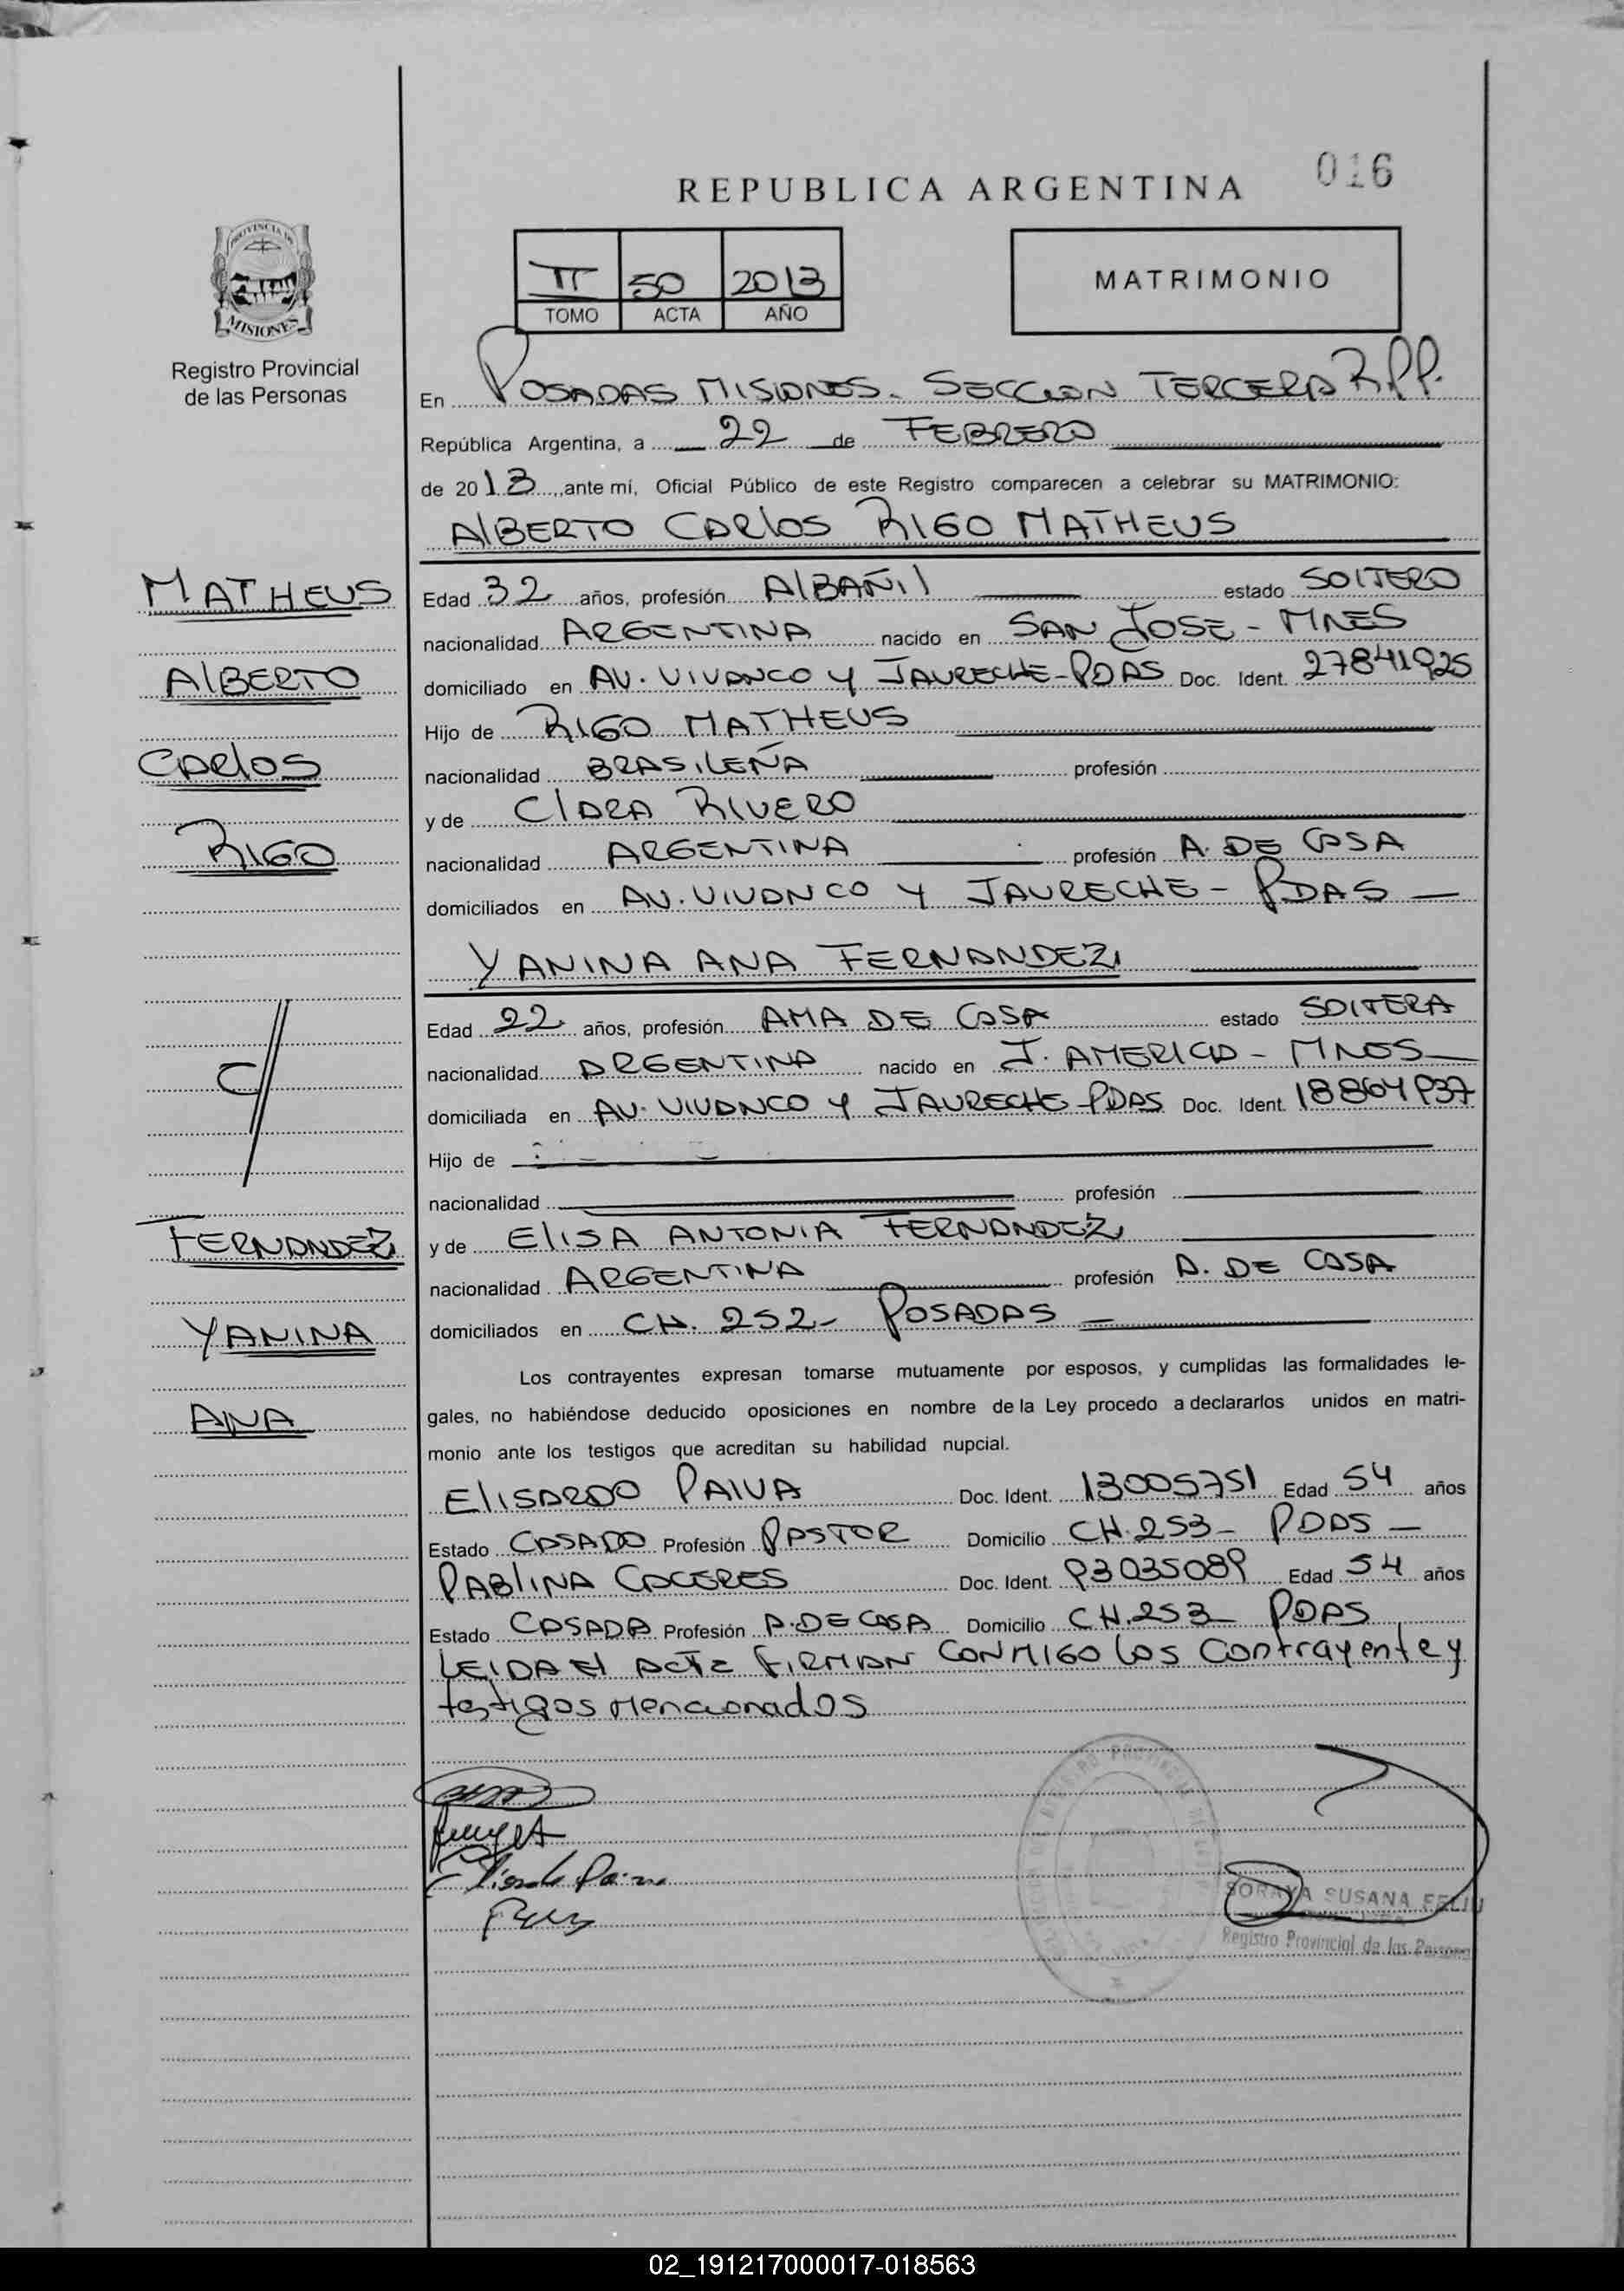 016
REPUBLICA ARGENTINA
PROVINCIA DE
MISIONES
Registro Provincial
de las Personas
II 50 2013
TOMO ACTA AÑO
MATRIMONIO
En POSADAS MISIONES. SECCION TERCERA R.P.P.
República Argentina, a 22 de FEBRERO
de 2013, ante mí, Oficial Público de este Registro comparecen a celebrar su MATRIMONIO:
AlBERTO CARlOS RIGO MATHEUS
MATHEUS
Edad 32 años, profesión AlBAÑIl estado SOlTERO
nacionalidad ARGENTINA nacido en SAN JOSE - MNES
AlBERTO
domiciliado en AV. VIVANCO Y JAURECHE-PDAS Doc. Ident. 27841925
Hijo de RIGO MATHEUS
CARlOS
nacionalidad BRASILEÑA profesión
y de ClARA RIVERO
RIGO
nacionalidad ARGENTINA profesión A. DE CASA
domiciliados en AV. VIVANCO Y JAURECHE - PDAS
YANINA ANA FERNANDEZ
Edad 22 años, profesión AMA DE CASA estado SOlTERA
nacionalidad ARGENTINA nacido en J. AMERICA - MNES
C/
domiciliada en AV. VIVANCO Y JAURECHE PDAS Doc. Ident. 18864937
Hijo de
nacionalidad profesión
FERNANDEZ
y de ElISA ANTONIA FERNANDEZ
nacionalidad ARGENTINA profesión A. DE CASA
YANINA
domiciliados en CH. 252- POSADAS
Los contrayentes expresan tomarse mutuamente por esposos, y cumplidas las formalidades le-
ANA
gales, no habiéndose deducido oposiciones en nombre de la Ley procedo a declararlos unidos en matri-
monio ante los testigos que acreditan su habilidad nupcial.
ElISARDO PAIVA Doc. Ident. 13005751 Edad 54 años
Estado CASADO Profesión PASTOR Domicilio CH.253- PDAS
PABlINA CACERES Doc. Ident. 93035089 Edad 54 años
Estado CASADA Profesión A.DE CASA Domicilio CH.253 PDAS
LEIDA El ACTA FIRMAN CONMIGO los Contrayente y
testigos Mencionados
SORAYA SUSANA FELIU
Registro Provincial de las Personas
02_191217000017-018563